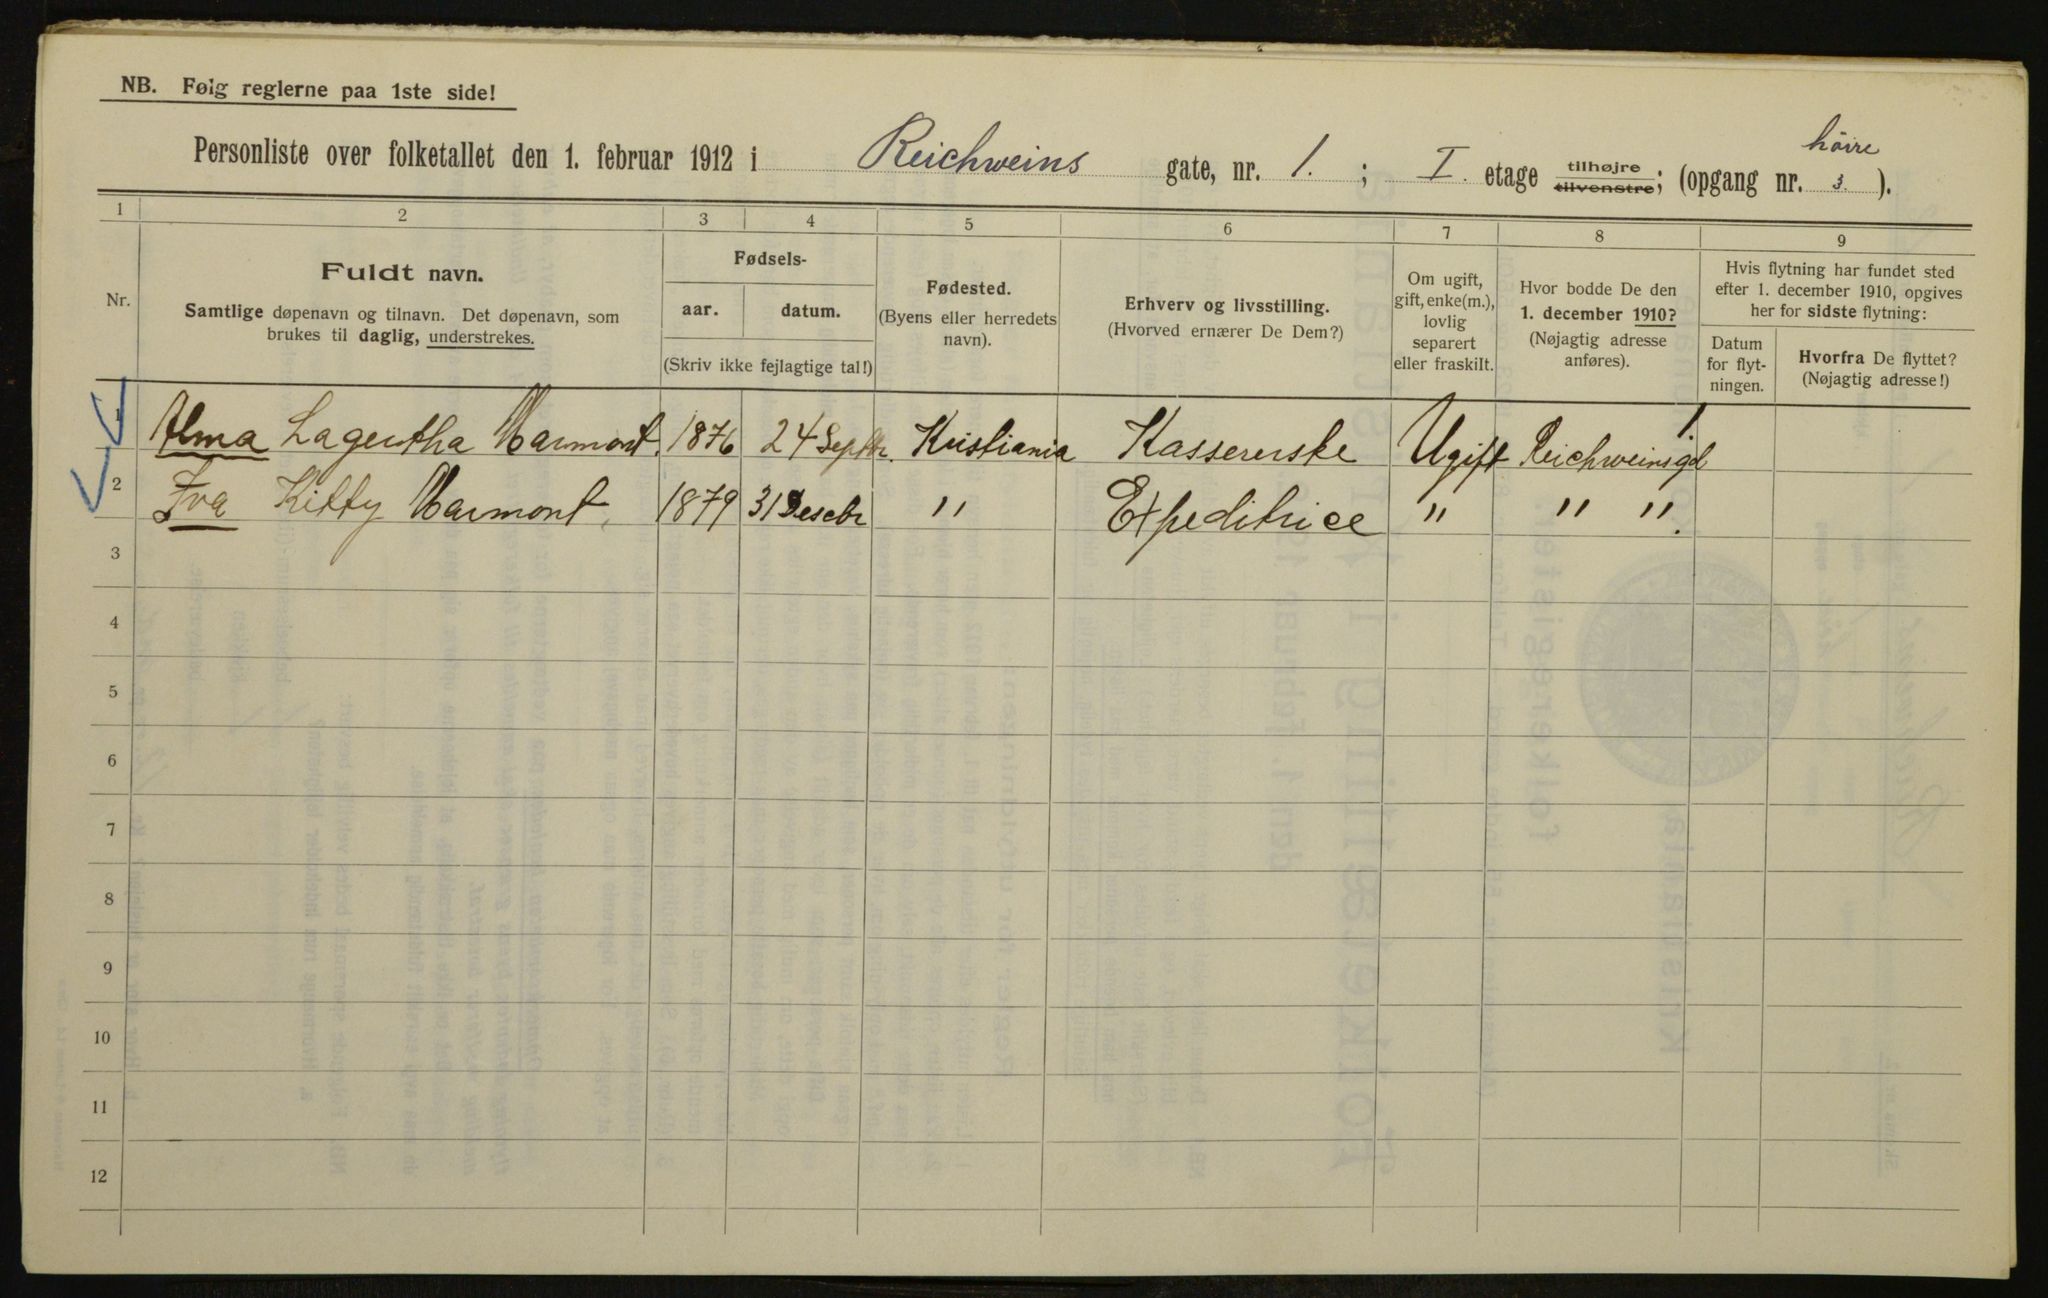 NB. Følg reglerne paa 1ste side!
Personliste over folketallet den 1. februar 1912 i Reichweins gate, nr. 1. ; I. etage tilhøjre tilvenstre; (opgang nr. 3. høire).
1 2 3 4 5 6 7 8 9
Nr.
Fuldt navn.
Samtlige døpenavn og tilnavn. Det døpenavn, som
brukes til daglig, understrekes.
Fødsels-
aar. datum.
(Skriv ikke fejlagtige tal!)
Fødested.
(Byens eller herredets
navn).
Erhverv og livsstilling.
(Hvorved ernærer De Dem?)
Om ugift,
gift, enke(m.),
lovlig
separert
eller fraskilt.
Hvor bodde De den
1. december 1910?
(Nøjagtig adresse
anføres).
Hvis flytning har fundet sted
efter 1. december 1910, opgives
her for sidste flytning:
Datum
for flyt-
ningen.
Hvorfra De flyttet?
(Nøjagtig adresse!)
1 Alma Lagertha Marmont. 1876 24 Septbr. Kristiania Kassererske Ugift Reichweinsgd 1
2 Iva Kitty Marmont, 1879 31 Desebr " Expeditrice " " ".
3
4
5
6
7
8
9
10
11
12